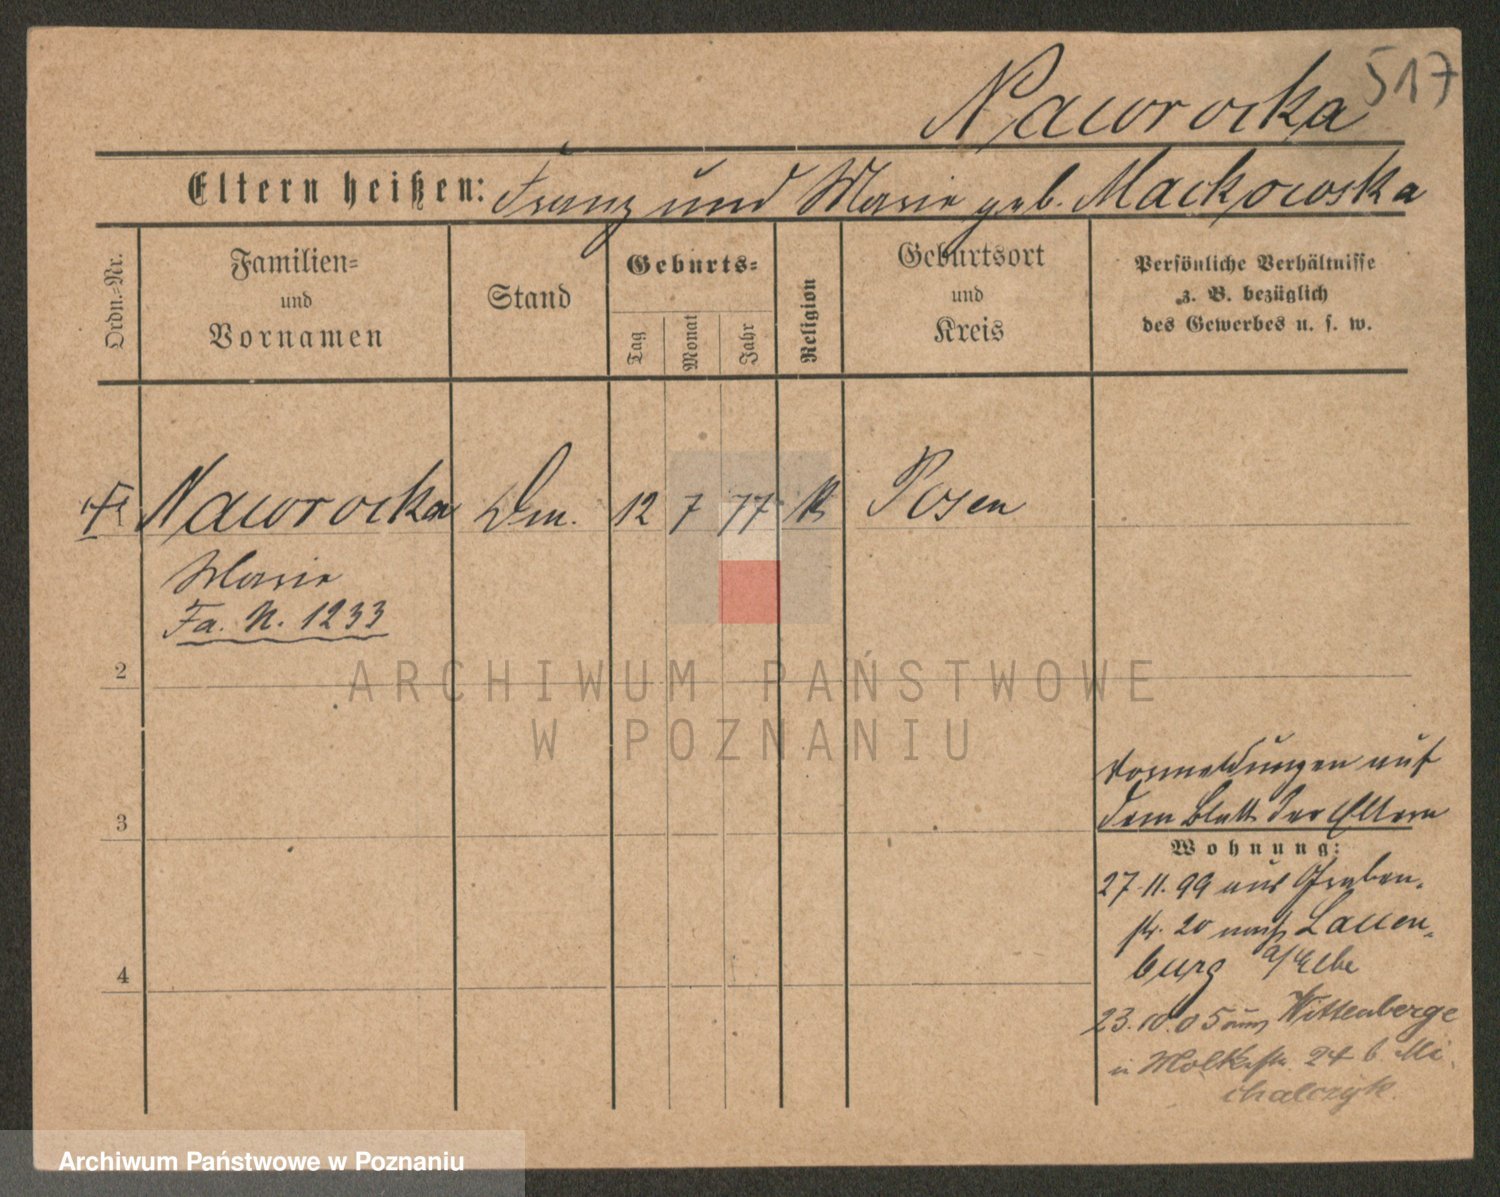 517
Naworocka
Eltern heißen: Franz und Marie geb. Mackowska
Ordn.-Nr.
Familien-
und
Vornamen
Stand
Geburts-
Tag
Monat
Jahr
Religion
Geburtsort
und
Kreis
Persönliche Verhältnisse
z. B. bezüglich
des Gewerbes u. s. w.
Naworocka 12 7 77 K Posen
Marie
Fa. N. 1233
2
ARCHIWUM PAŃSTWOWE
W POZNANIU
Vormeldungen auf
dem Blatt der Eltern
3
Wohnung:
27.11.99 aus Graben-
str. 20 nach Lauen-
burg a/Elbe
4
23.10.05 aus Wittenberge
in Moltkestr. 24 b. Mi
chalczyk.
Archiwum Państwowe w Poznaniu